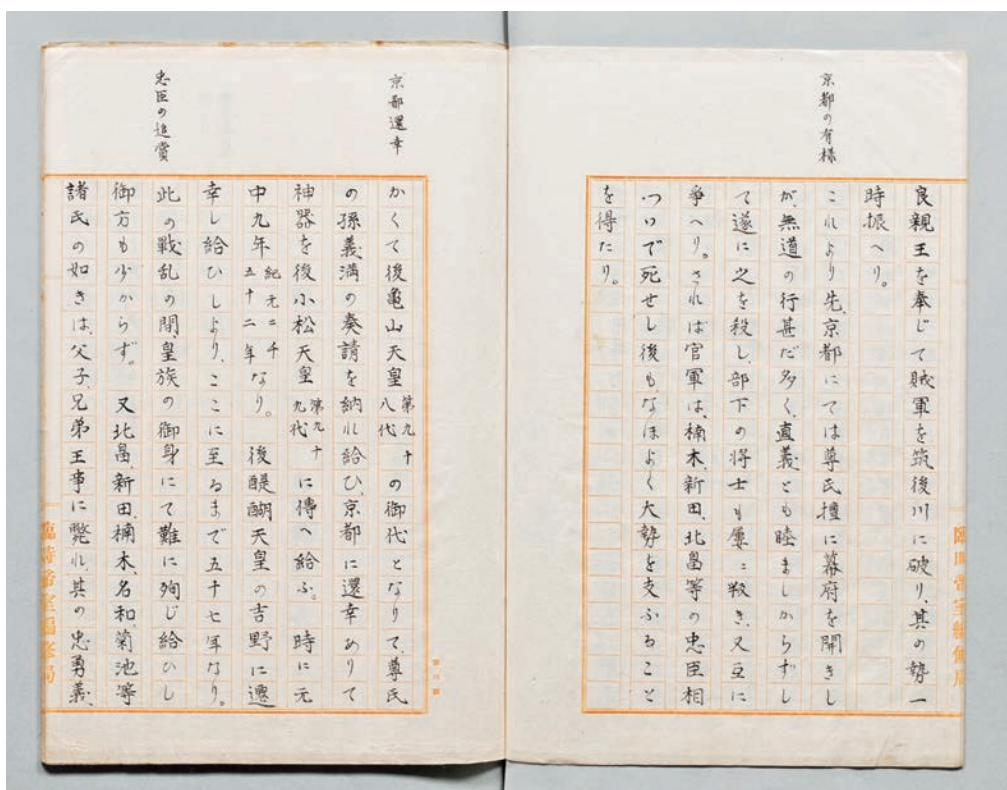 京都の有様
良親王を奉じて賊軍を筑後川に破り、其の勢一
時振へり。
これより先、京都にては尊氏擅に幕府を開きし
が、無道の行甚だ多く、直義とも睦ましからずし
て遂に之を殺し、部下の将士も屢〻叛き、又互に
争へり。されば官軍は、楠木、新田、北畠等の忠臣相
ついで死せし後も、なほよく大勢を支ふること
を得たり。
京都還幸
かくて後亀山天皇 第九十八代 の御代となりて、尊氏
の孫義満の奏請を納れ給ひ、京都に還幸ありて
神器を後小松天皇 第九十九代 に傳へ給ふ。時に元
中九年 紀元二千五十二年 なり。後醍醐天皇の吉野に遷
幸し給ひしより、ここに至るまで五十七年なり。
忠臣の追賞
此の戦乱の間、皇族の御身にて難に殉じ給ひし
御方も少からず。又北畠、新田、楠木、名和、菊池等
諸氏の如きは、父子、兄弟王事に斃れ、其の忠勇義
臨時帝室編修局
臨時帝室編修局